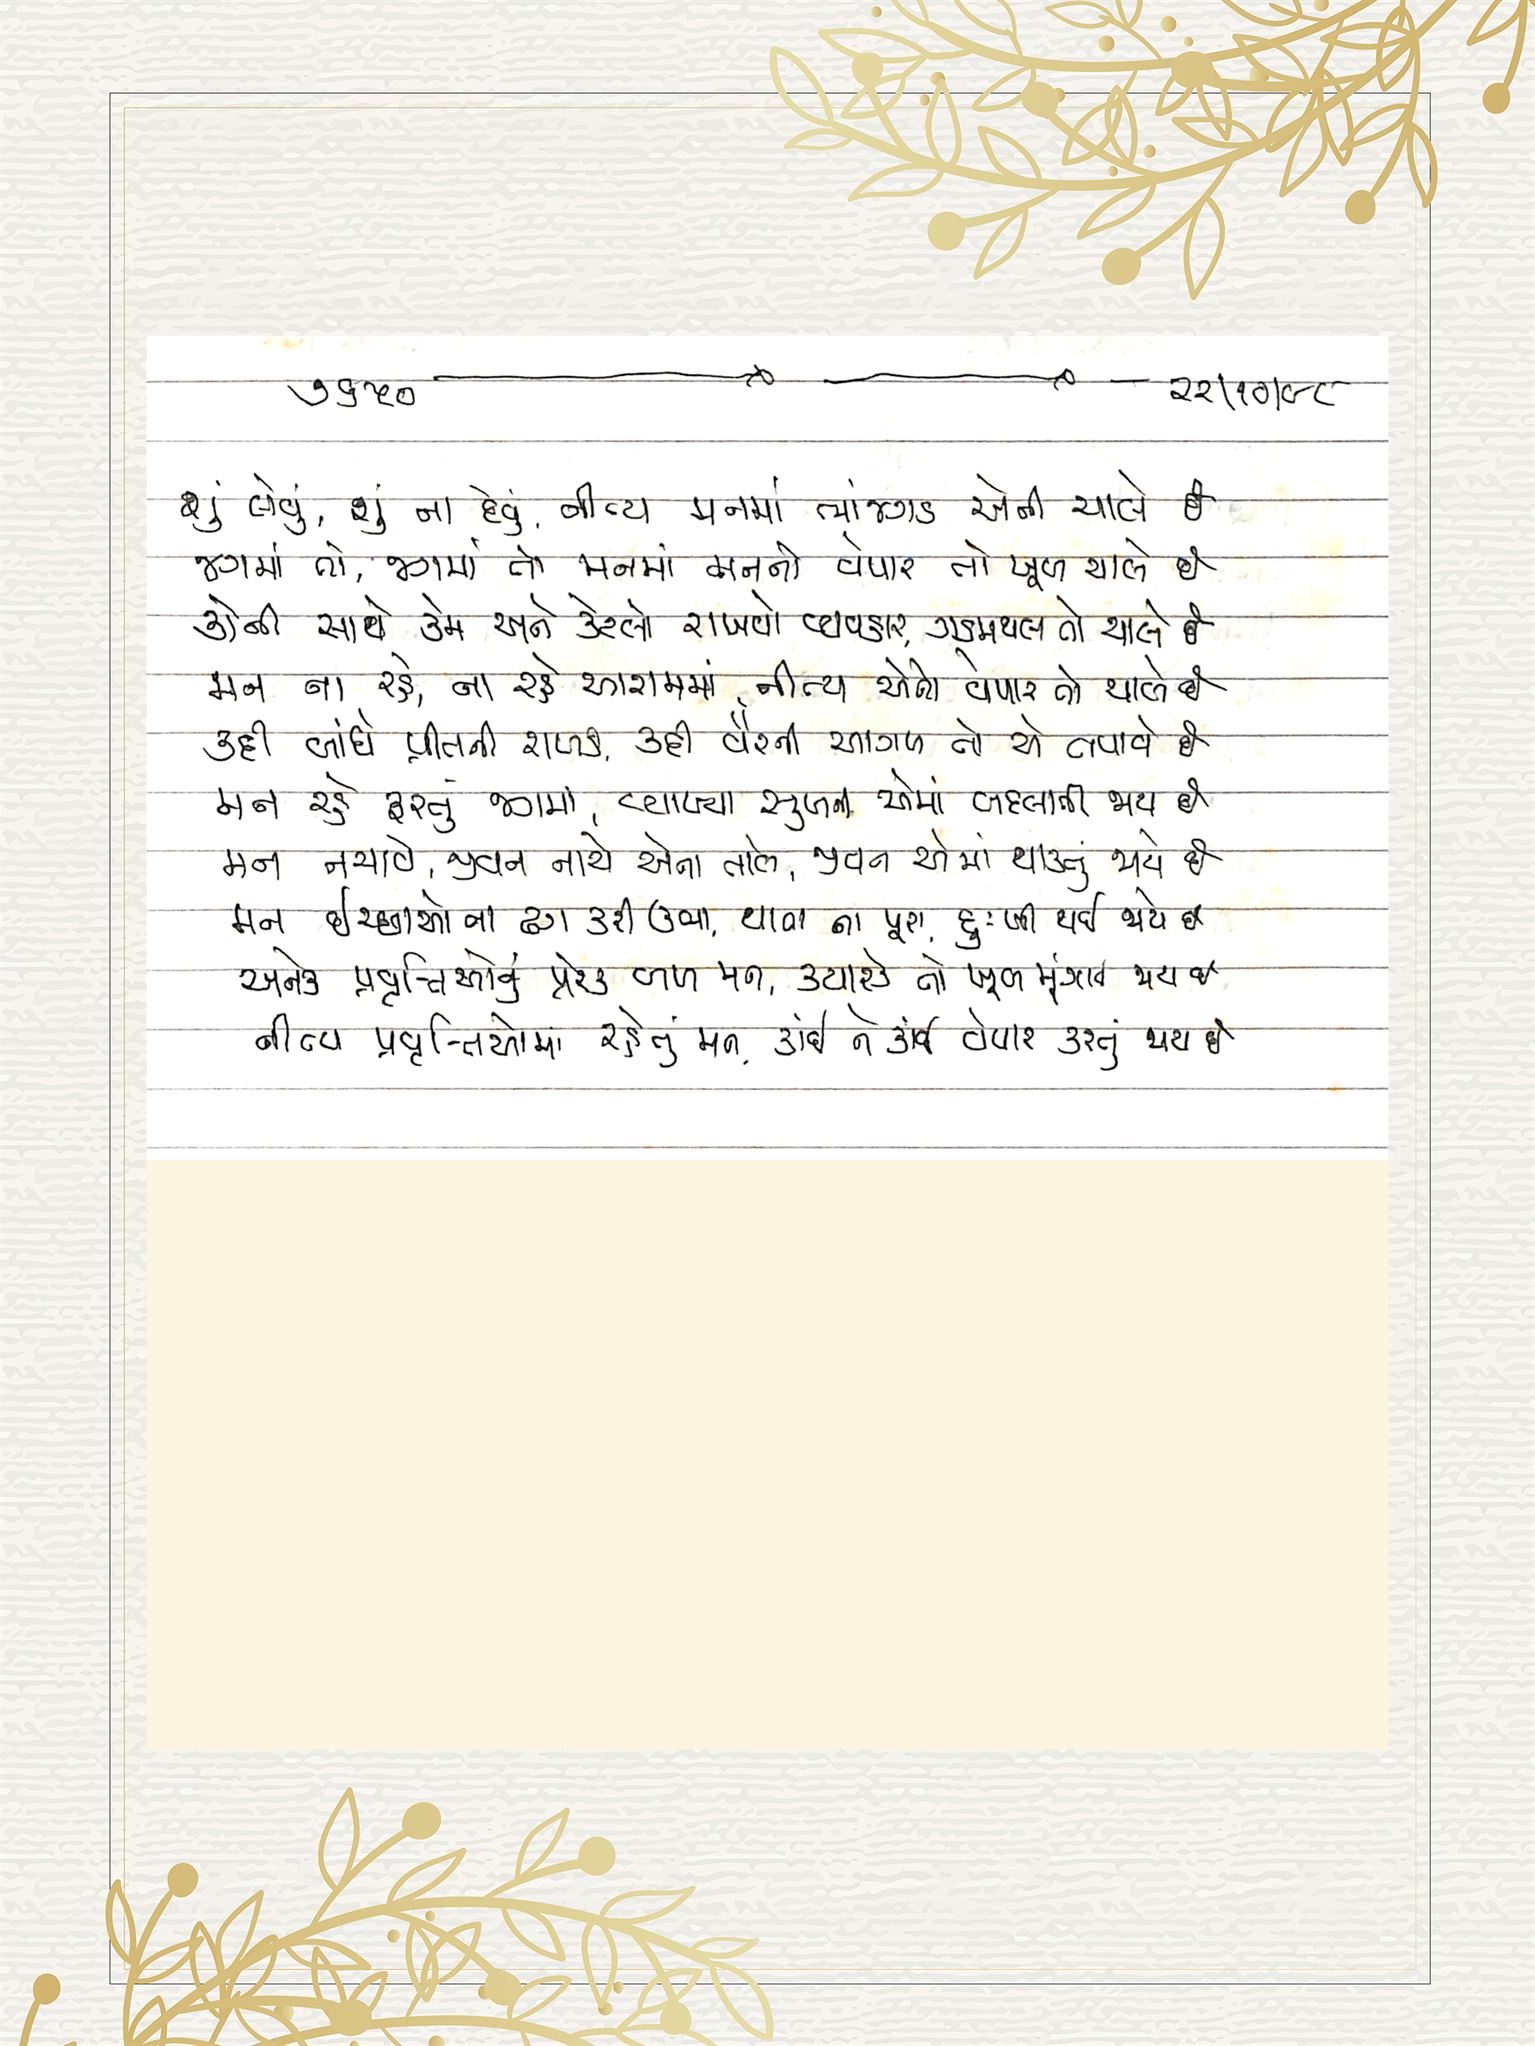 ૭૬૫૦ ૨૨/૧૦/૯૮
શું લેવું, શું ના દેવું, નીત્ય મનમાં ભાંજગડ એની ચાલે છે
જગમાં તો, જગમાં તો મનમાં મનનો વેપાર તો ખૂબ ચાલે છે
કોની સાથે કેમ અને કેટલો રાખવો વ્યવહાર, ગડમથલ તો ચાલે છે
મન ના રહે, ના રહે આરામમાં, નીત્ય એનો વેપાર તો ચાલે છે
કદી બાંધે પ્રીતની રાખડી, કદી વૈરની આગળ તો એ તપાવે છે
મન રહે ફરતું જગમાં, વ્યાખ્યા સુખની એમાં બદલાતી જાય છે
મન નચાવે, જીવન નાચે એના તાલે, જીવન એમાં થાકતું જાયે છે
મન ઈચ્છાઓના ઢગ કરી ઊભા, થાતા ના પૂરા, દુઃખી થઈ જાયે છે
અનેક પ્રવૃત્તિઓનું પ્રેરક બળ મન, ક્યારેક તો ખૂબ મૂંઝાઈ જાય છે
નીત્ય પ્રવૃત્તિઓમાં રહેતું મન, કાંઈ ને કાંઈ વેપાર કરતું જાય છે